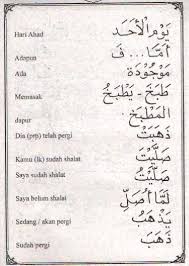 Hari Ahad يَوْمُ الْأَحَد
Adapun أَمَّا... فَ
Ada مَوْجُوْدَة
Memasak طَبَخَ - يَطْبَخُ
dapur الْمَطْبَخ
Dia (prp) telah pergi ذَهَبَتْ
Kamu (lk) sudah shalat صَلَّيْتَ
Saya sudah shalat صَلَّيْتُ
Saya belum shalat لَمَّا أُصَلِّ
Sedang / akan pergi يَذْهَبُ
Sudah pergi ذَهَبَ